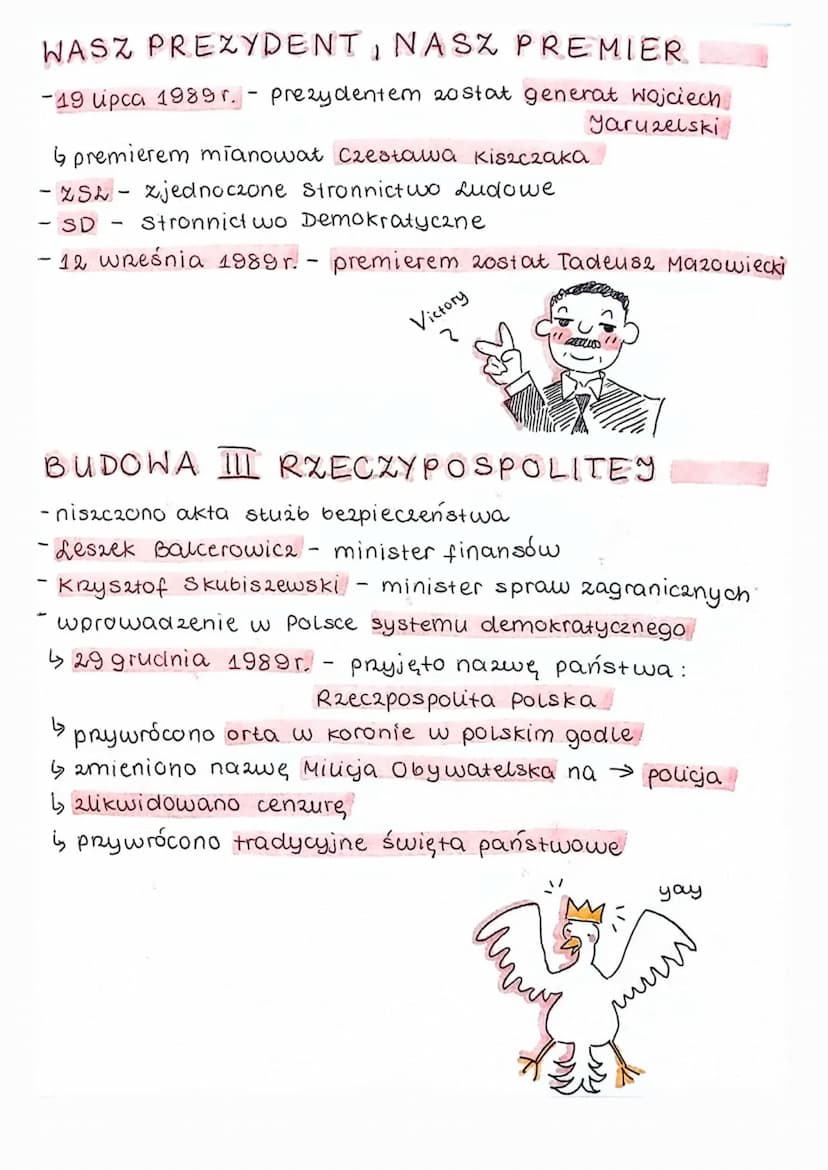 WASZ PREZYDENT, NASZ PREMIER
- 19 lipca 1989r. - prezydentem został generał Wojciech
Jaruzelski
↳ premierem mianował Czesława Kiszczaka
- ZSL - Zjednoczone Stronnictwo Ludowe
- SD - Stronnictwo Demokratyczne
- 12 września 1989r. - premierem został Tadeusz Mazowiecki
Victory
BUDOWA III RZECZYPOSPOLITEJ
- niszczono akta służb bezpieczeństwa
- Leszek Balcerowicz - minister finansów
- Krzysztof Skubiszewski - minister spraw zagranicznych
- wprowadzenie w Polsce systemu demokratycznego
↳ 29 grudnia 1989r. - przyjęto nazwę państwa:
Rzeczpospolita Polska
↳ przywrócono orła w koronie w polskim godle
↳ zmieniono nazwę Milicja Obywatelska na → policja
↳ zlikwidowano cenzurę
↳ przywrócono tradycyjne święta państwowe
yay